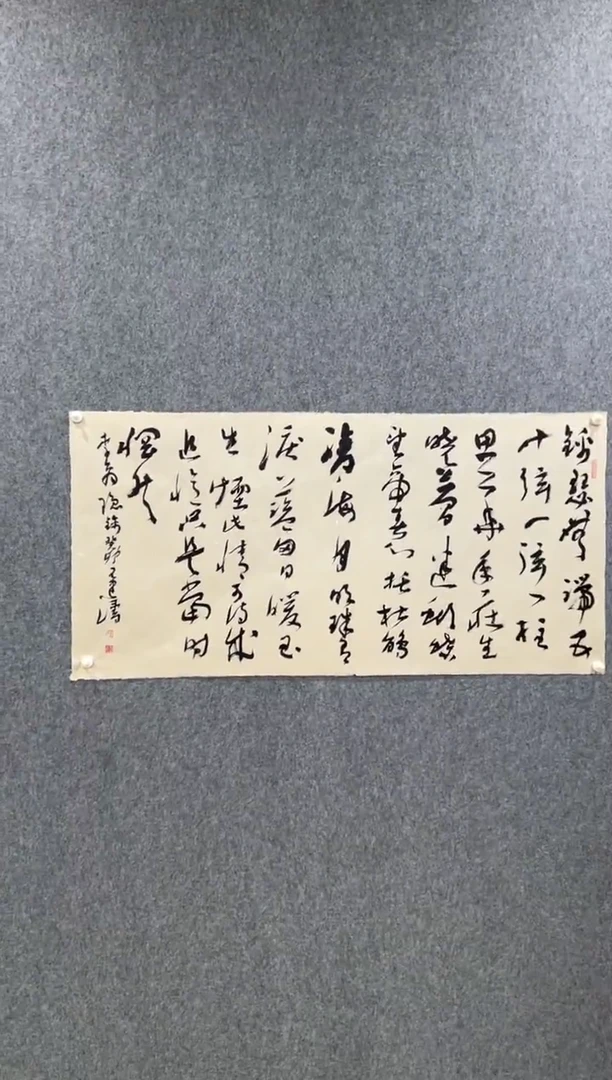 錦瑟無端五
十弦一弦一柱
思華年莊生
曉夢迷蝴蝶
望帝春心托杜鵑
滄海月明珠有
淚藍田日暖玉
生煙此情可待成
追憶只是當時
惘然
李商隐錦瑟